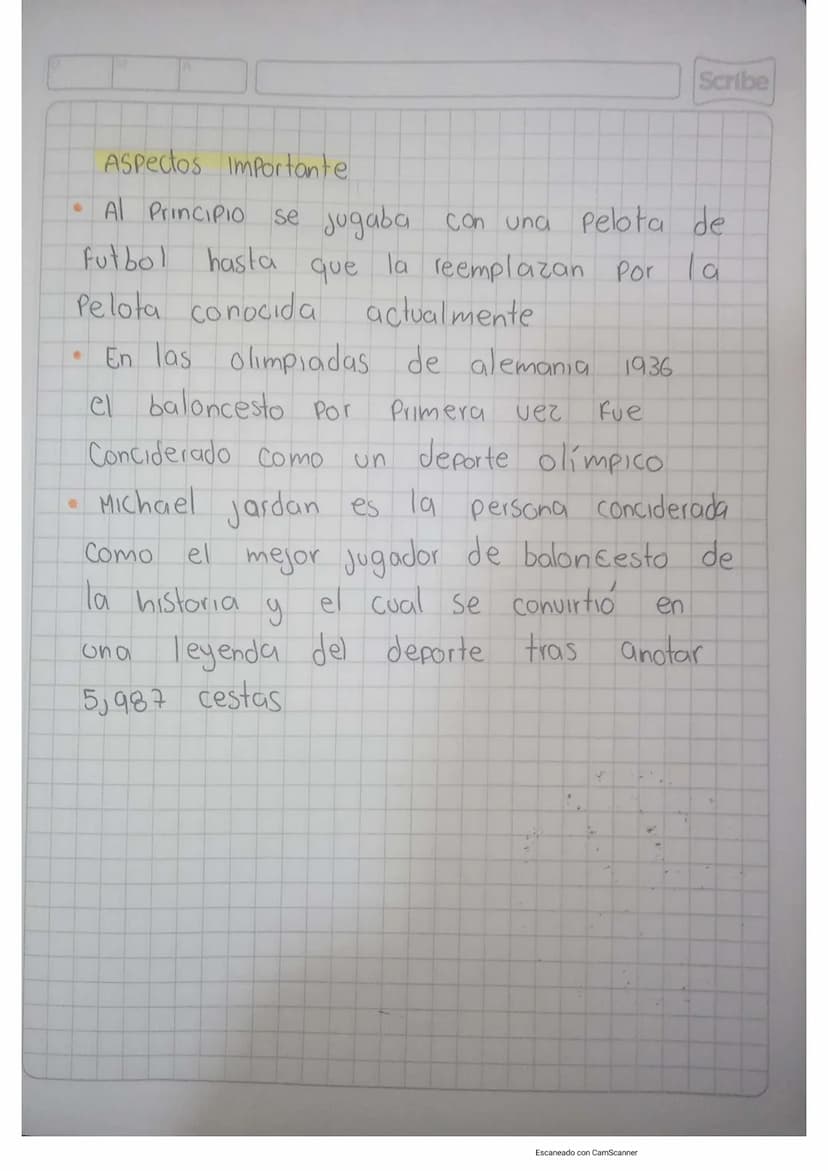 Scribe
Aspectos importante
• Al principio se jugaba con una pelota de
futbol hasta que la reemplazan por la
pelota conocida actualmente
• En las olimpiadas de alemania 1936
el baloncesto por primera vez fue
conciderado como un deporte olímpico
• Michael jardan es la persona conciderada
como el mejor jugador de baloncesto de
la historia y el cual se convirtió en
una leyenda del deporte tras anotar
5,987 cestas
Escaneado con CamScanner